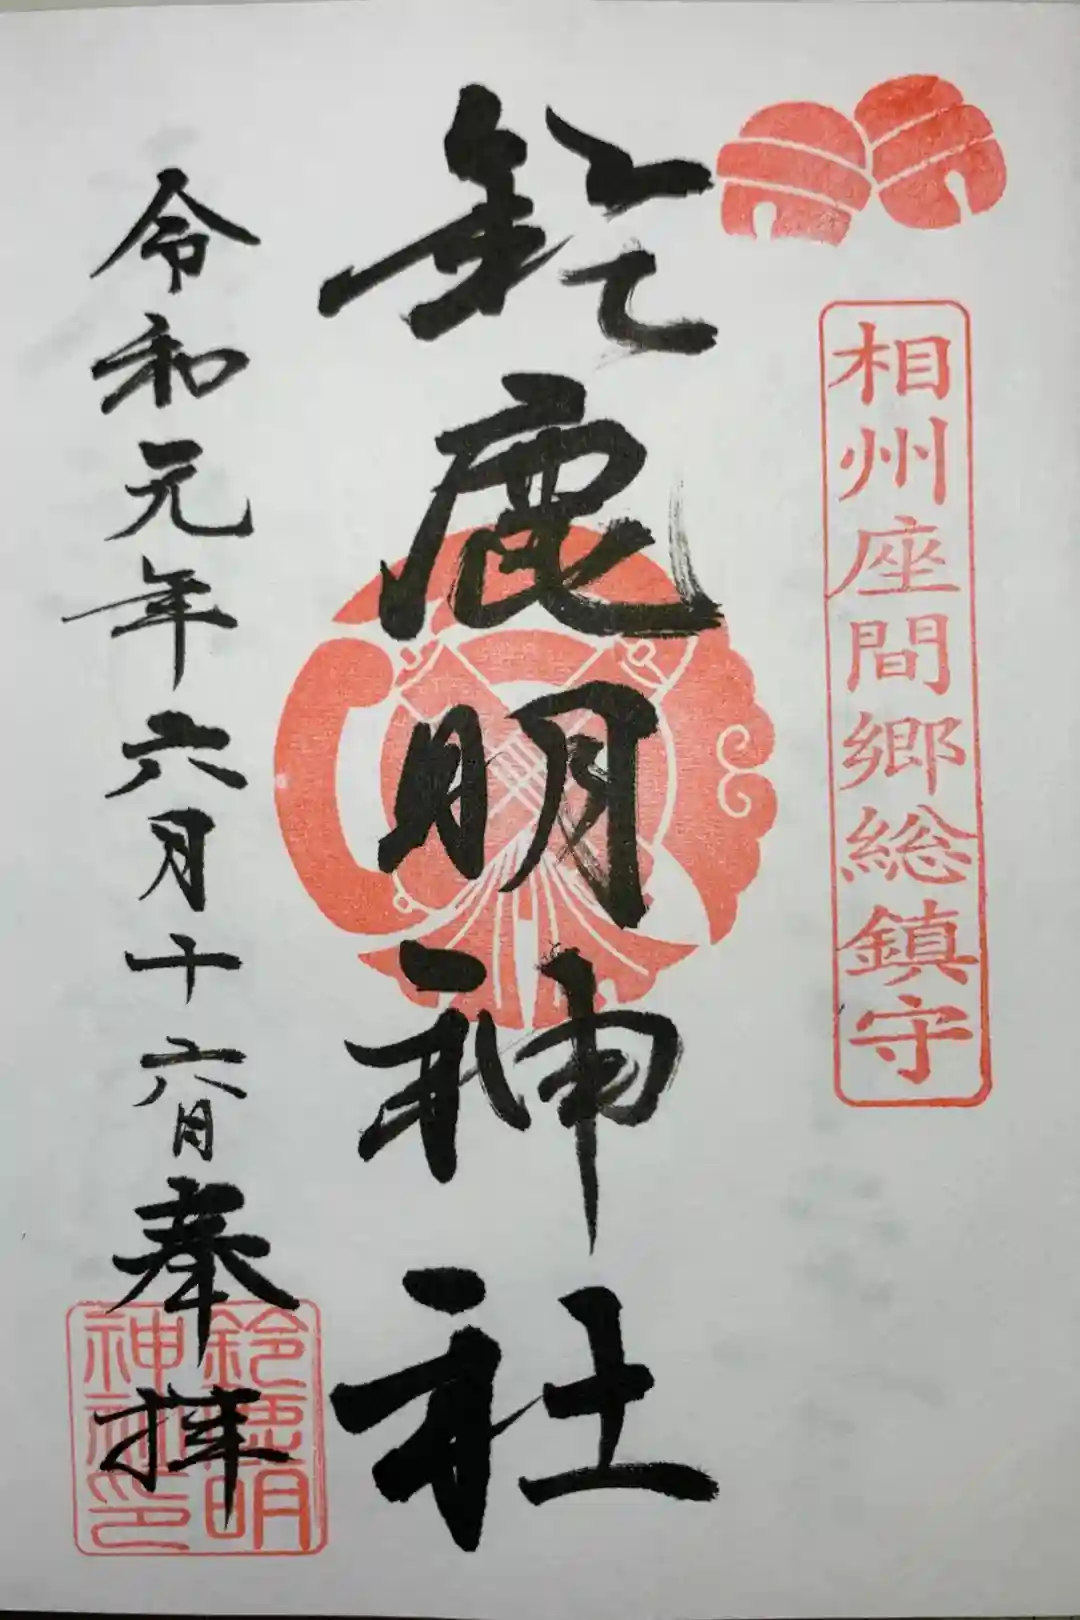 相州座間郷総鎮守
鈴鹿明神社
令和元年六月十六日奉拝
鈴鹿明
神社印